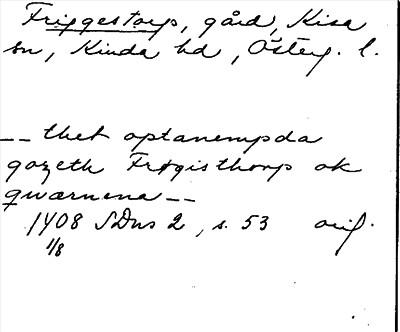 Friggestorp, gård, Kisa
sn, Kinda hd, Österg. l.
-- thet optanempda
gozeth Frøgisthorp ok
qwærnena --
1408 SDns 2, s. 53 orig.
1/8